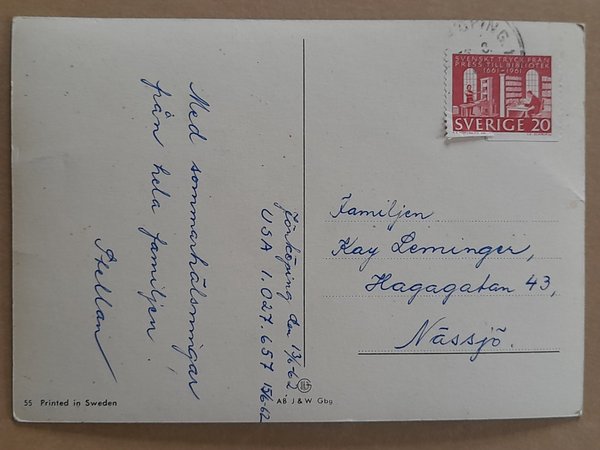 PING 1
SVENSKT TRYCK FRÅN
PRESS TILL BIBLIOTEK
1661-1961
SVERIGE 20
Med sommarhälsningar
från hela familjen.
Stellan
Jönköping den 13/6-62.
USA 1.027.657 15/6-62
Familjen
Kay Leminger,
Hagagatan 43,
Nässjö.
55 Printed in Sweden
AB J & W Gbg